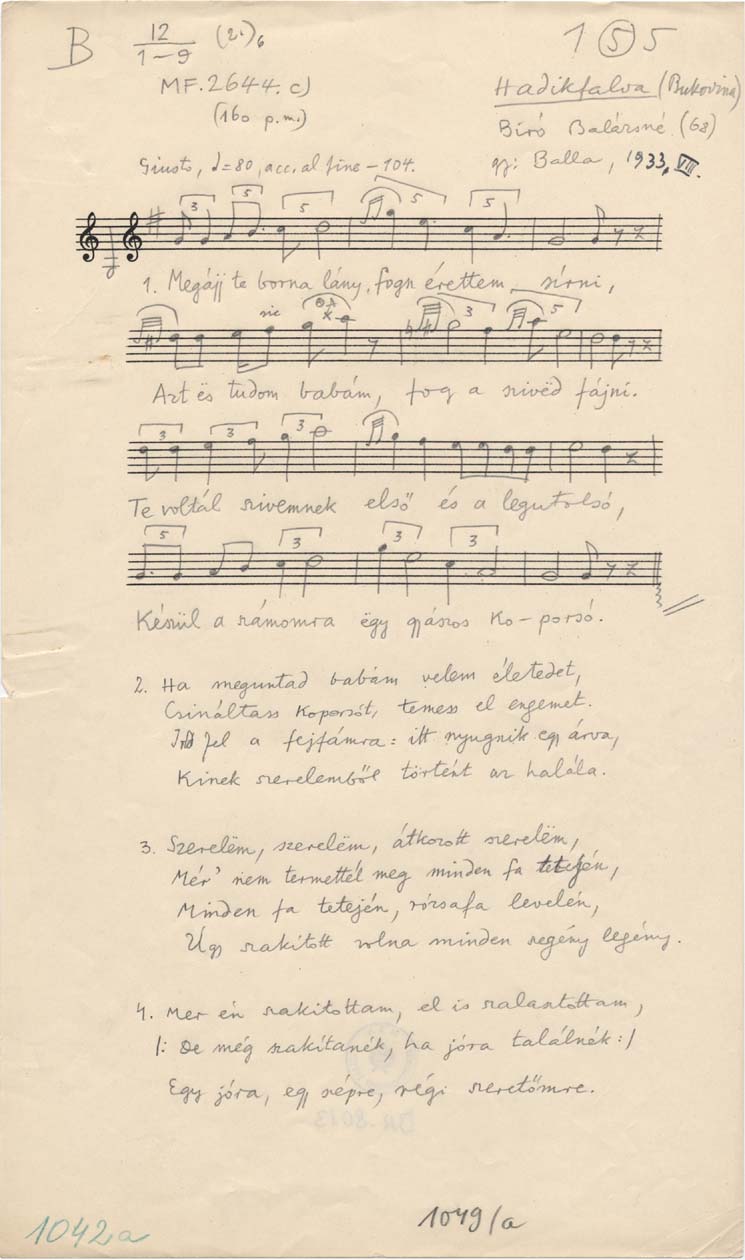 B 12/1–9 (21)6
1 5 5
MF. 2644. c)
(160 p.m.)
Hadikfalva (Bukovina)
Bíró Balázsné (68)
gy: Balla, 1933, VIII.
Giusto, ♩=80, acc. al fine – 104.
3 5 5 5 5
1. Megájj te borna lány, fogn érettem sírni,
sic 3 5
Azt ës tudom babám, fog a szivëd fájni.
3 3 3
Te voltál szivemnek első és a legutolsó,
5 3 3 3
Készül a számomra ëgy gyászos ko–porsó.
2. Ha meguntad babám velem életedet,
Csináltass koporsót, temess el engemet.
Irdd fel a fejfámra: itt nyugnik egy árva,
Kinek szerelemből történt az halála.
3. Szerelëm, szerelëm, átkozott szerelëm,
Mér' nem termettél meg minden fa tetején,
Minden fa tetején, rózsafa levelén,
Úgy szakított volna minden szegény legény.
4. Mer én szakítottam, el is szalasztottam,
/: De még szakítanék, ha jóra találnék :/
Egy jóra, egy szépre, régi szeretőmre.
1042a
1049/a